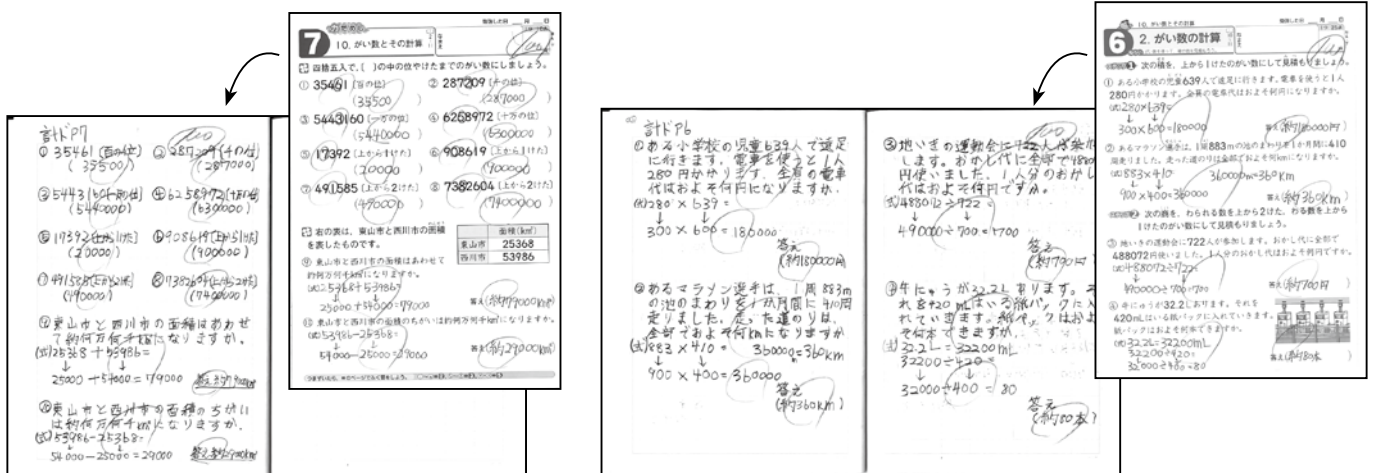 計ドP7
100
① 35461 [百の位]
(35500)
② 287209 [千の位]
(287000)
(5440000)
④ 6258972 [十万の位]
(6300000)
⑤ 17392 [上から1けた]
(20000)
⑥ 908619 [上から1けた]
(900000)
⑦ 491585 [上から2けた]
(490000)
⑧ 7382604 [上から2けた]
(7400000)
⑨ 東山市と西川市の面積はあわせ
て約何万何千km²になりますか。
(式) 25368 + 53986 =
↓ ↓
25000 + 54000 = 79000
⑩ 東山市と西川市の面積のちがい
は約何万何千km²になりますか。
(式) 53986 − 25368 =
54000 − 25000 = 29000
7
10. がい数とその計算
100
四捨五入で、( )の中の位やけたまでのがい数にしましょう。
① 35461 [百の位]
(35500)
② 287209 [千の位]
(287000)
③ 5443160 [一万の位]
(5440000)
④ 6258972 [十万の位]
(6300000)
⑤ 17392 [上から1けた]
(20000)
⑥ 908619 [上から1けた]
(900000)
⑦ 491585 [上から2けた]
(490000)
⑧ 7382604 [上から2けた]
(7400000)
右の表は、東山市と西川市の面積
を表したものです。
面積(km²)
東山市 25368
西川市 53986
⑨ 東山市と西川市の面積はあわせて
約何万何千km²になりますか。
(式) 25368 + 53986 =
25000 + 54000 = 79000
答え(約79000km²)
⑩ 東山市と西川市の面積のちがいは約何万何千km²になりますか。
(式) 53986 − 25368 =
54000 − 25000 = 29000
答え(約29000km²)
計ドP6
① ある小学校の児童639人で遠足
に行きます。電車を使うと1人
280円かかります。全員の電車
代はおよそ何円になりますか。
(式) 280 × 639 =
↓ ↓
300 × 600 = 180000
答え
(約180000円)
② あるマラソン選手は、1周883m
の池のまわりを1か月間に410周
走りました。走った道のりは、
全部でおよそ何kmになりますか
(式) 883 × 410 = 360000 = 360km
↓ ↓
900 × 400 = 360000
答え
(約360km)
100
③ 地いきの運動会に722人が参加
します。おかし代に全部で4880
円使いました。1人分のおかし
代はおよそ何円ですか。
(式) 488072 ÷ 722 =
↓ ↓
490000 ÷ 700 = 700
答え
(約700円)
④ 牛にゅうが32.2Lあります。そ
れを420mLはいる紙パックに入
れていきます。紙パックはおよ
そ何本できますか。
(式) 32.2L = 32200mL
32200 ÷ 420 =
↓ ↓
32000 ÷ 400 = 80
答え
(約80本)
6
10. がい数とその計算
2. がい数の計算
100
次の積を、上から1けたのがい数にして見積もりましょう。
① ある小学校の児童639人で遠足に行きます。電車を使うと1人
280円かかります。全員の電車代はおよそ何円になりますか。
(式) 280 × 639 =
300 × 600 = 180000
答え(約180000円)
② あるマラソン選手は、1周883mの池のまわりを1か月間に410
周走りました。走った道のりは全部でおよそ何kmになりますか。
(式) 883 × 410 360000m = 360km
900 × 400 = 360000
答え(約360km)
次の商を、わられる数を上から2けた、わる数を上から
1けたのがい数にして見積もりましょう。
③ 地いきの運動会に722人が参加します。おかし代に全部で
488072円使いました。1人分のおかし代はおよそ何円ですか。
(式) 488072 ÷ 722 =
490000 ÷ 700 = 700
答え(約700円)
④ 牛にゅうが32.2Lあります。それを
420mLはいる紙パックに入れていきます。
紙パックはおよそ何本できますか。
(式) 32.2L = 32200mL
32200 ÷ 420 =
32000 ÷ 400 = 80
答え(約80本)